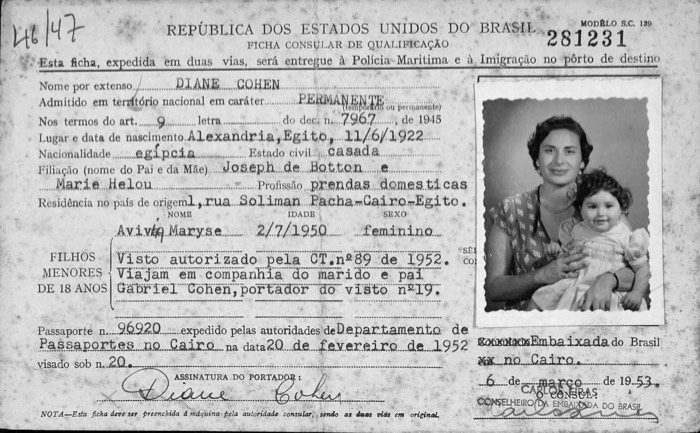 46/47
REPÚBLICA DOS ESTADOS UNIDOS DO BRASIL
MODÊLO S.C. 139
FICHA CONSULAR DE QUALIFICAÇÃO
281231
Esta ficha, expedida em duas vias, será entregue à Polícia Marítima e à Imigração no pôrto de destino
Nome por extenso DIANE COHEN
Admitido em território nacional em caráter PERMANENTE
(temporário ou permanente)
Nos termos do art. 9 letra do dec. n. 7967, de 1945
Lugar e data de nascimento Alexandria, Egito, 11/6/1922
Nacionalidade egípcia Estado civil casada
Filiação (nome do Pai e da Mãe) Joseph de Botton e
Marie Helou Profissão prendas domesticas
Residência no país de origem 1, rua Soliman Pacha-Cairo-Egito.
NOME IDADE SEXO
Aviva Maryse 2/7/1950 feminino
FILHOS MENORES DE 18 ANOS
Visto autorizado pela CT.nº89 de 1952.
Viajam em companhia do marido e pai
Gabriel Cohen, portador do visto nº19.
Passaporte n. 96920 expedido pelas autoridades de Departamento de
Passaportes no Cairo na data 20 de fevereiro de 1952
visado sob n. 20.
ASSINATURA DO PORTADOR:
Diane Cohen
NOTA—Esta ficha deve ser preenchida à máquina pela autoridade consular, sendo as duas vias em original.
Embaixada do Brasil
no Cairo.
6 de março de 1953.
CARLOS EIRAS
O CONSUL:
CONSELHEIRO DA EMBAIXADA DO BRASIL